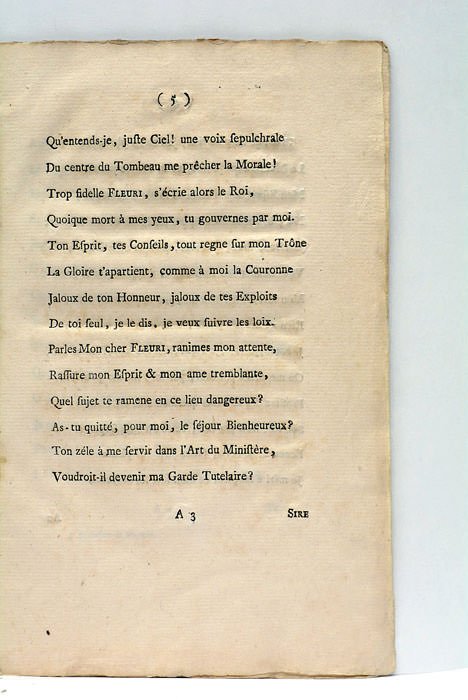 ( 5 )
Qu'entends-je, juſte Ciel! une voix ſepulchrale
Du centre du Tombeau me prêcher la Morale!
Trop fidelle FLEURI, s'écrie alors le Roi,
Quoique mort à mes yeux, tu gouvernes par moi.
Ton Eſprit, tes Conſeils, tout regne ſur mon Trône
La Gloire t'apartient, comme à moi la Couronne
Jaloux de ton Honneur, jaloux de tes Exploits
De toi ſeul, je le dis, je veux ſuivre les loix.
Parles Mon cher FLEURI, ranimes mon attente,
Raſſure mon Eſprit & mon ame tremblante,
Quel ſujet te ramene en ce lieu dangereux?
As-tu quitté, pour moi, le ſéjour Bienheureux?
Ton zéle à me ſervir dans l'Art du Miniſtère,
Voudroit-il devenir ma Garde Tutelaire?
A 3 SIRE